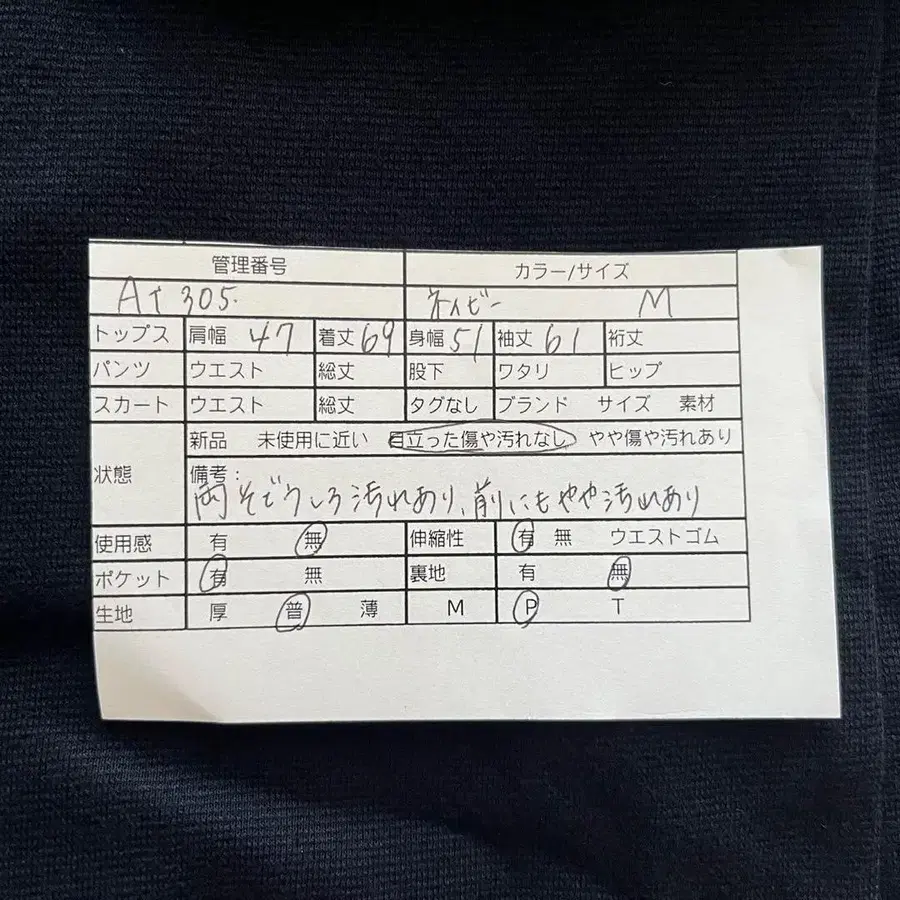 管理番号 カラー/サイズ
AT 305. ネイビー M
トップス 肩幅 47 着丈 69 身幅 51 袖丈 61 裄丈
パンツ ウエスト 総丈 股下 ワタリ ヒップ
スカート ウエスト 総丈 タグなし ブランド サイズ 素材
新品 未使用に近い 目立った傷や汚れなし やや傷や汚れあり
状態 備考:
両そでうしろ汚れあり、前にもやや汚れあり
使用感 有 無 伸縮性 有 無 ウエストゴム
ポケット 有 無 裏地 有 無
生地 厚 普 薄 M P T